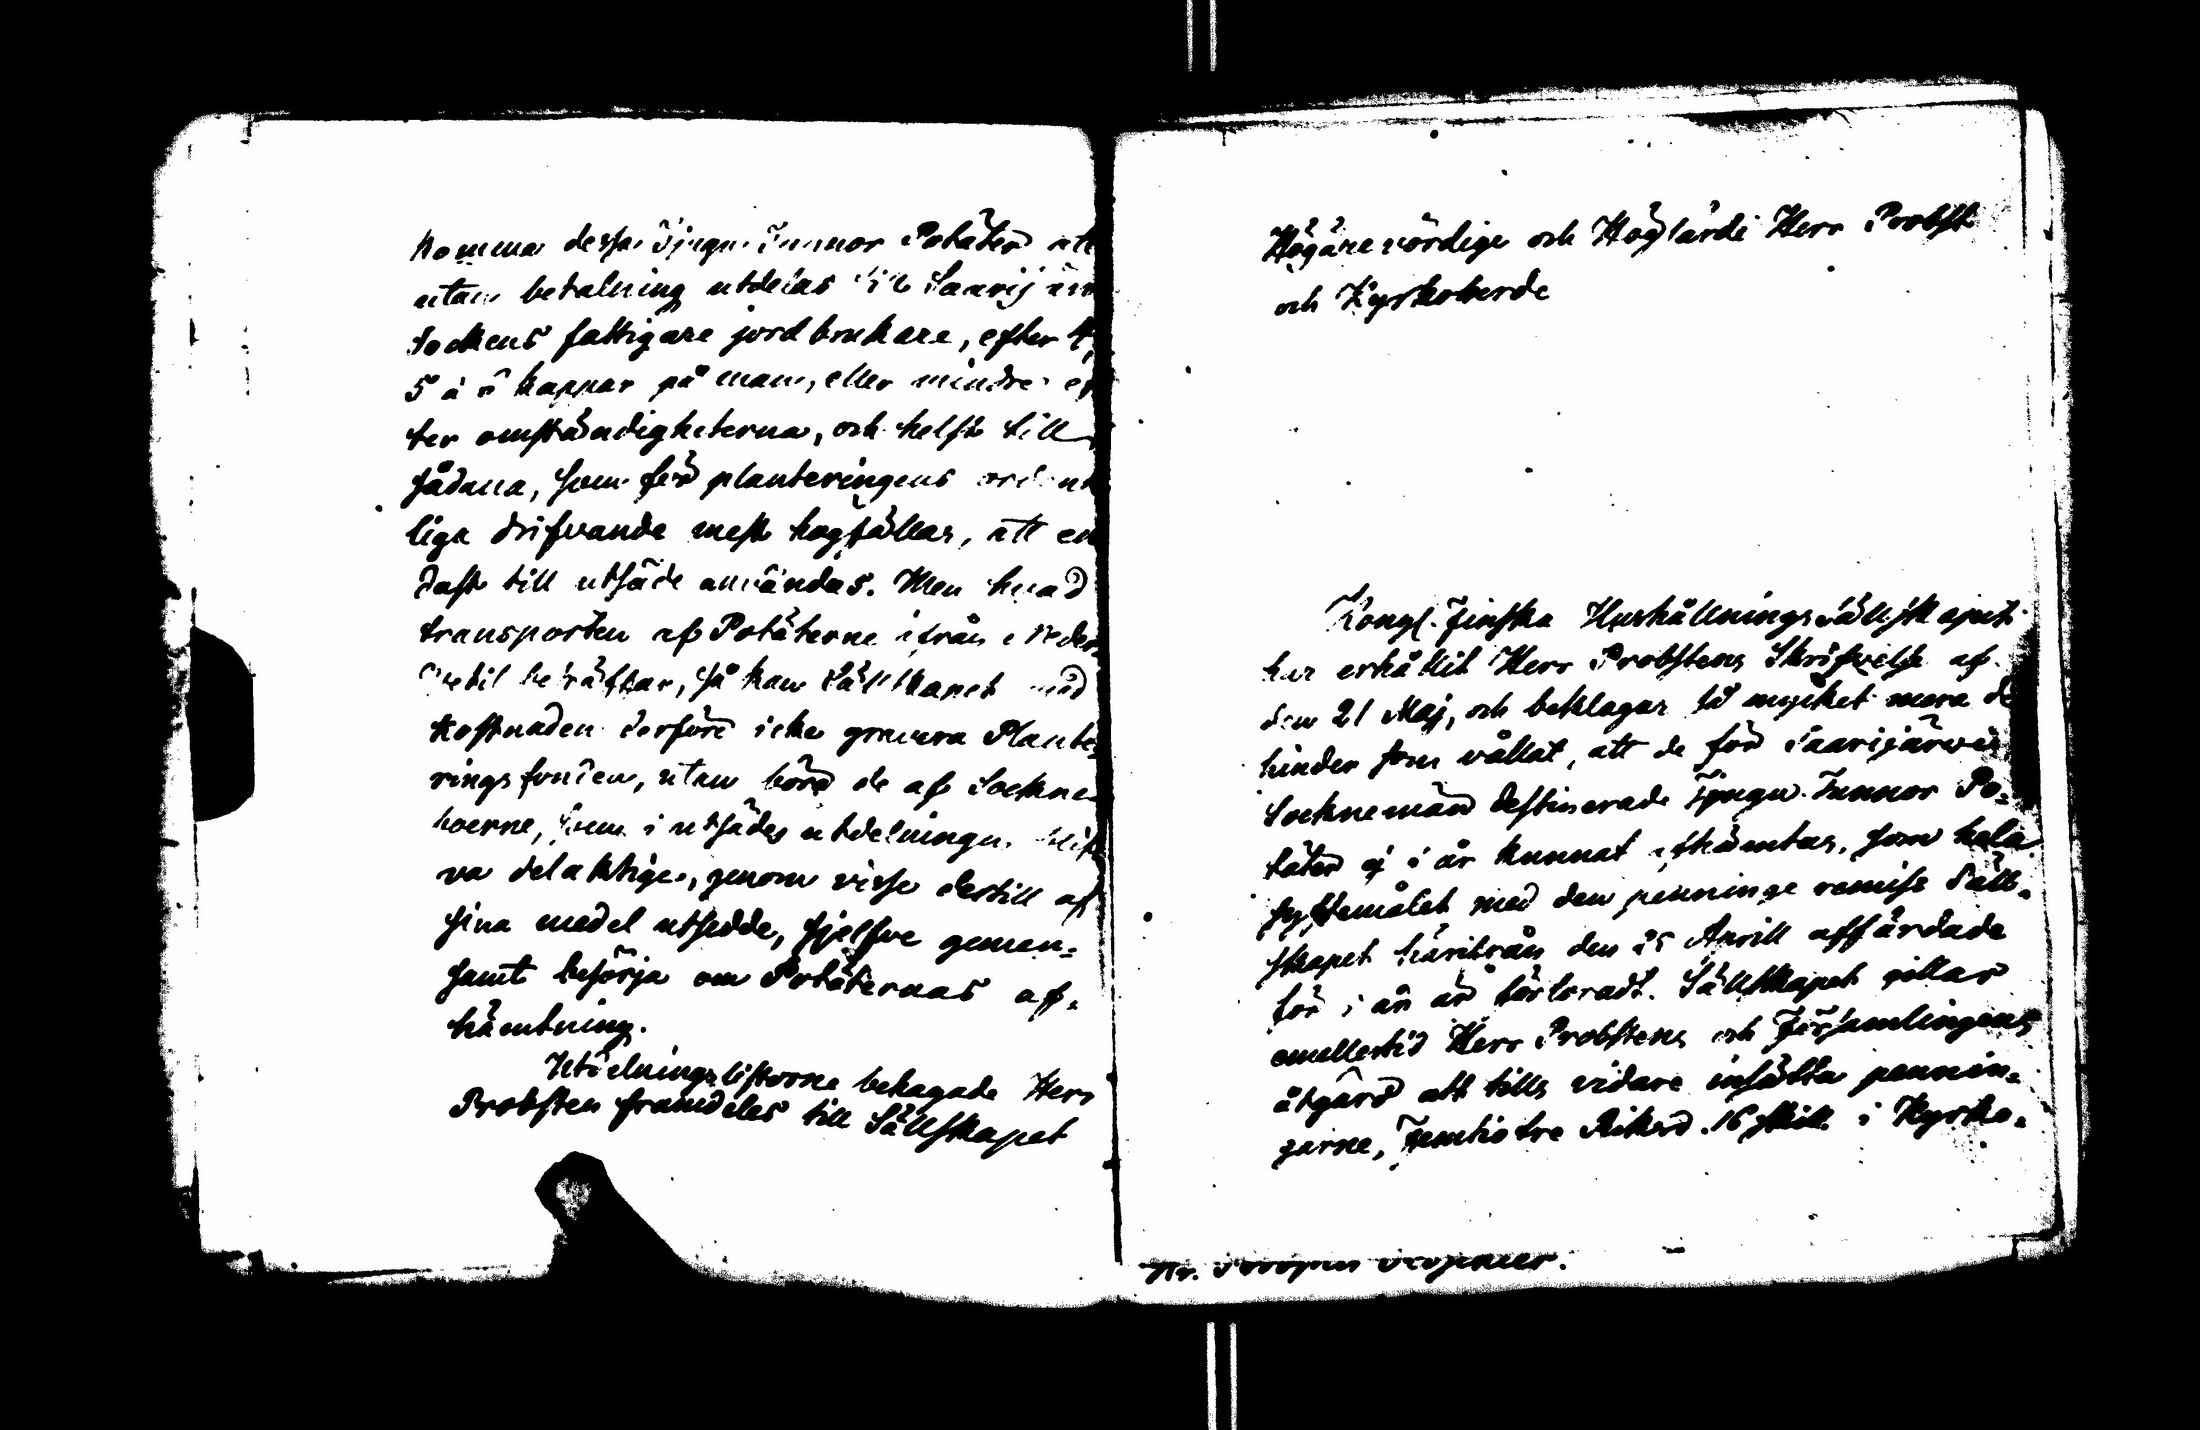 komma dessa Tjugu Tunnor Potäter att
utan betalning utdelas til Saarijärvi
Sockens fattigare jordbrukare, efter 4,
5 à 6 kappar på man, eller mindre ef
ter omständigheterna, och helst till
sådana, som för planteringens ordent
liga drifvande mest hogfällas, att en
dast till utsäde användas. Men hvad
transporten af Potäterne ifrån Neder
beträffar, så kan Sällskapet med
kostnaden derföre icke gravera Plante-
ringsfonden, utan böra de af Sockne-
boerne, som i utsädes utdelningen blif
va delaktige, genom visse dertill af
sina medel utsedde, sjelfve gemen-
samt besörja om Potäternas af-
hämtning.
Utdelningslistorne behagade Herr
Probsten framdeles till Sällskapet
Högärevördige och Höglärde Herr Probst
och Kyrkoherde
Kongl. Finska Hushållnings Sällskapet
har erhållit Herr Probstens Skrifvelse af
den 21 Maj, och beklagar så mycket mera de
hinder som vållat, att de för Saarijärvi
Socknemän destinerade Tjugu Tunnor Po-
täter ej i år kunnat afhämtas, som hela
syftemålet med den penninge remise Säll-
skapet härifrån den 25 Aprill affärdade
för i år är förloradt. Sällskapet gillar
emellertid Herr Probstens och Församlingens
åtgärd att tills vidare insätta pennin-
garne, Femtiotre Riksd. 16 skill. i Kyrko-